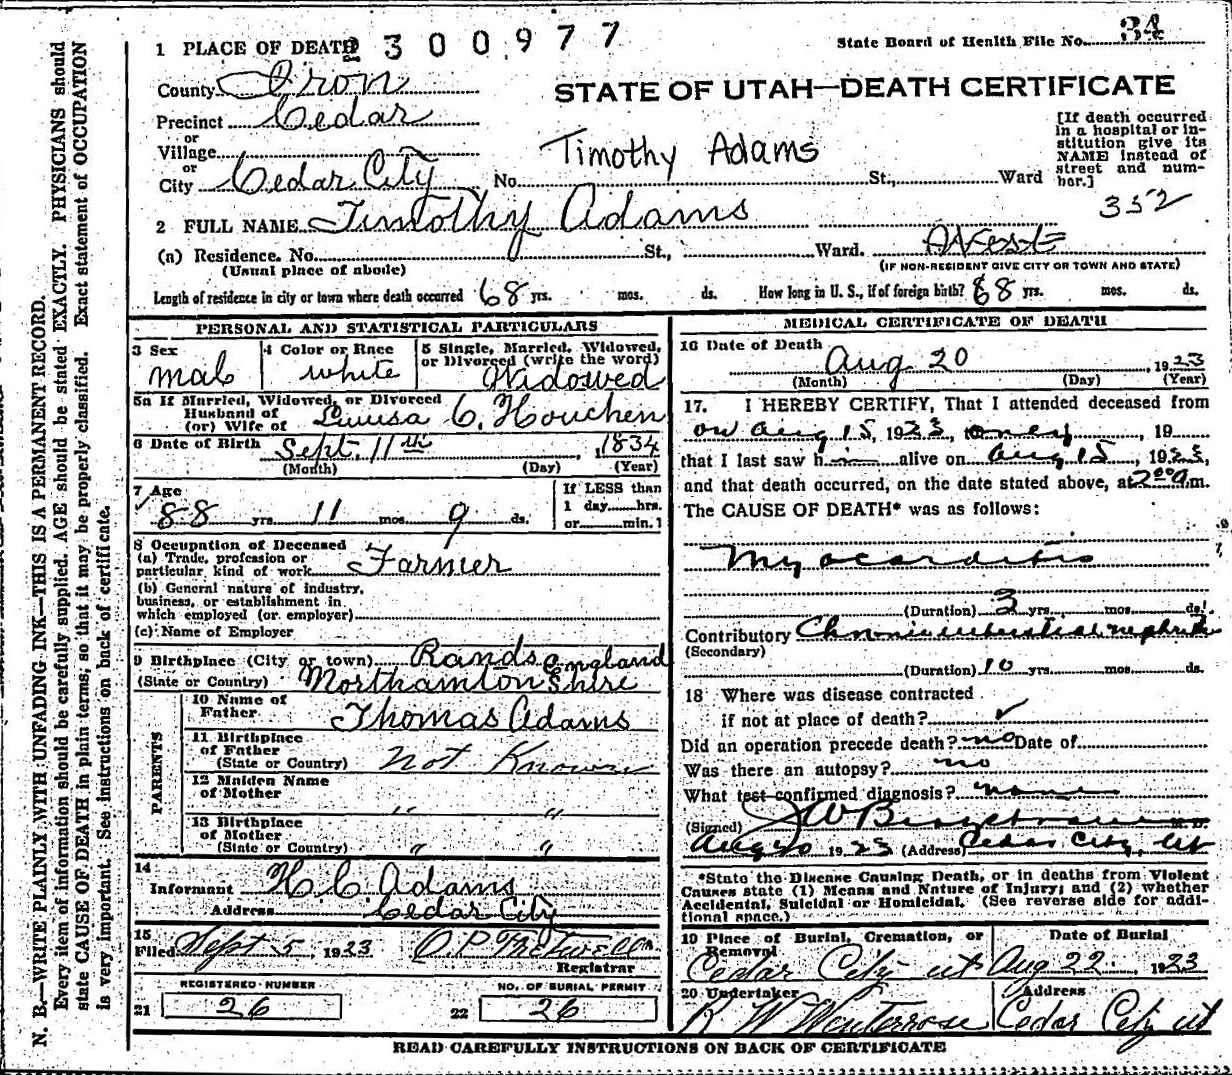 N. B.—WRITE PLAINLY WITH UNFADING INK—THIS IS A PERMANENT RECORD.
Every item of information should be carefully supplied. AGE should be stated EXACTLY. PHYSICIANS should
state CAUSE OF DEATH in plain terms, so that it may be properly classified. Exact statement of OCCUPATION
is very important. See instructions on back of certificate.
1 PLACE OF DEATH 2300977
State Board of Health File No. 34
County Iron
STATE OF UTAH—DEATH CERTIFICATE
Precinct Cedar
or
Village
Timothy Adams
[If death occurred in a hospital or institution give its NAME instead of street and number.]
or
City Cedar City No. St., Ward
352
2 FULL NAME Timothy Adams
(a) Residence. No. St., Ward. West
(Usual place of abode) (IF NON-RESIDENT GIVE CITY OR TOWN AND STATE)
Length of residence in city or town where death occurred 68 yrs. mos. ds. How long in U. S., if of foreign birth? 68 yrs. mos. ds.
PERSONAL AND STATISTICAL PARTICULARS
3 Sex
Male
4 Color or Race
White
5 Single, Married, Widowed, or Divorced (write the word)
Widowed
5a If Married, Widowed, or Divorced
Husband of
(or) Wife of Louisa C. Houchen
6 Date of Birth Sept. 11th, 1834
(Month) (Day) (Year)
7 Age
88 yrs. 11 mos. 9 ds.
If LESS than
1 day hrs.
or min.]
8 Occupation of Deceased
(a) Trade, profession or
particular kind of work Farmer
(b) General nature of industry,
business, or establishment in
which employed (or employer)
(c) Name of Employer
9 Birthplace (City or town) Rands England
(State or Country) Northamton Shire
PARENTS
10 Name of
Father Thomas Adams
11 Birthplace
of Father
(State or Country) Not Known
12 Maiden Name
of Mother " "
13 Birthplace
of Mother
(State or Country) " "
14
Informant H. C. Adams
Address Cedar City
15
Filed Sept 5, 1923
Registrar
REGISTERED NUMBER
21 26
NO. OF BURIAL PERMIT
22 26
MEDICAL CERTIFICATE OF DEATH
16 Date of Death
Aug 20, 1923
(Month) (Day) (Year)
17. I HEREBY CERTIFY, That I attended deceased from
on Aug 15, 1923, only, 19
that I last saw him alive on Aug 15, 1923,
and that death occurred, on the date stated above, at 2:00 a.m.
The CAUSE OF DEATH* was as follows:
Myocarditis
(Duration) 3 yrs. mos. ds.
Contributory Chronic interstitial nephritis
(Secondary)
(Duration) 10 yrs. mos. ds.
18 Where was disease contracted
if not at place of death? ✓
Did an operation precede death? no Date of
Was there an autopsy? no
What test confirmed diagnosis? none
(Signed) M. D.
Aug 20 1923 (Address) Cedar City, Ut
*State the Disease Causing Death, or in deaths from Violent
Causes state (1) Means and Nature of Injury; and (2) whether
Accidental, Suicidal or Homicidal. (See reverse side for addi-
tional space.)
19 Place of Burial, Cremation, or
Removal
Cedar City Ut
Date of Burial
Aug 22, 1923
20 Undertaker
Address
Cedar City Ut
READ CAREFULLY INSTRUCTIONS ON BACK OF CERTIFICATE